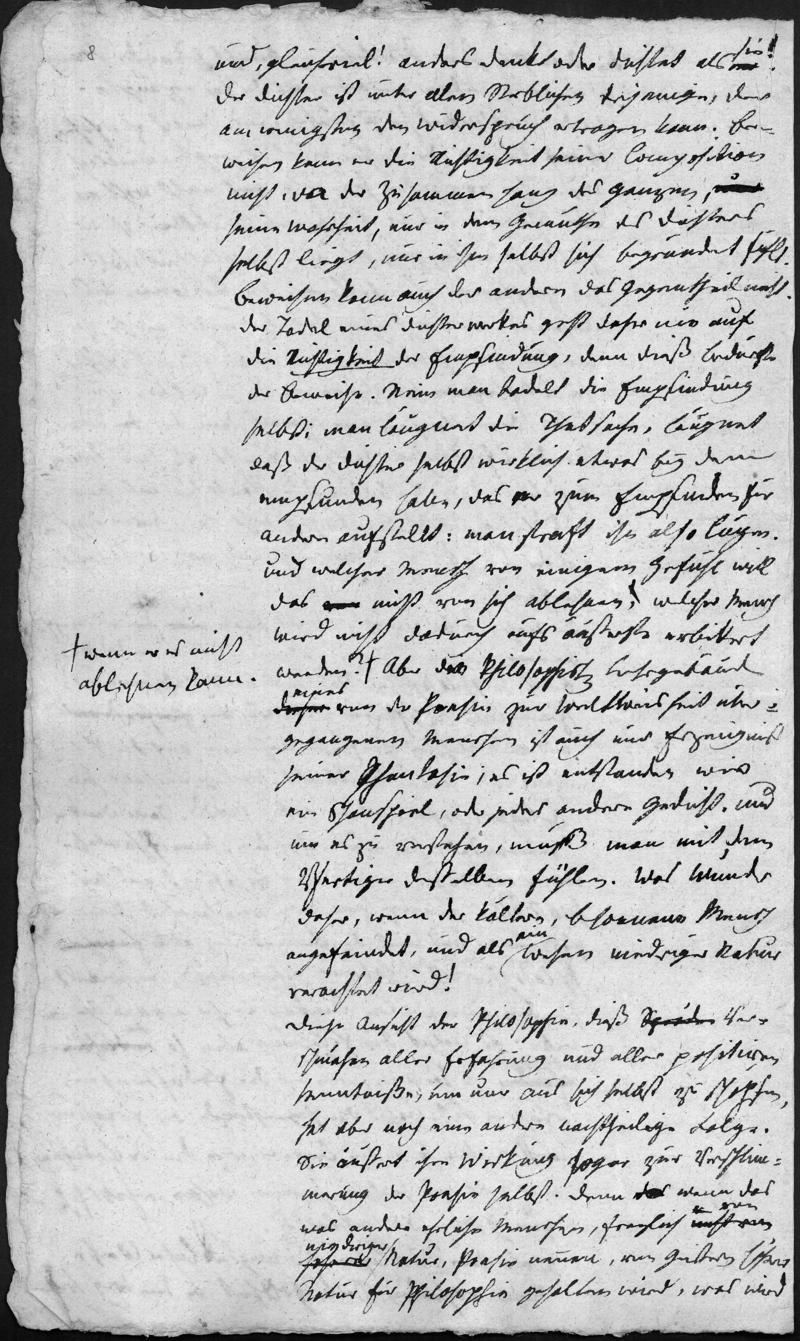 8
und, gleichviel! anders denkt oder dichtet als sie!
Der Dichter ist unter allen Sterblichen derjenige, der
am wenigsten den Widerspruch ertragen kann. Be-
weisen kann er die Richtigkeit seiner Composition
nicht, da der Zusammenhang des Ganzen,
seine Wahrheit, nur in dem Gemüthe des Dichters
selbst liegt, nur in ihm selbst sich begründet fühlt.
Beweisen kann auch der andere das Gegentheil nicht.
Der Tadel eines Dichterwerkes geht daher nie auf
die Richtigkeit der Empfindung, denn dieß bedürfte
der Beweise. Nein man tadelt die Empfindung
selbst; man läugnet die Thatsache, läugnet
daß der Dichter selbst wirklich etwas bey dem
empfunden habe, das er zum Empfinden für
andere aufstellt: man straft ihn also Lügen.
Und welcher Mensch von einigem Gefühl will
das nicht von sich ablehnen? welcher Mensch
wird nicht dadurch aufs äußerste erbittert
werden?† Aber das Philosophische Lehrgebäude
† wenn er es nicht
ablehnen kann.
eines
von der Poesie zur Weltweisheit über-
gegangenen Menschen ist auch nur Erzeugniß
seiner Phantasie; es ist entstanden wie
ein Schauspiel, oder jedes andere Gedicht. Und
um es zu verstehen, muß man mit dem
Verfertiger desselben fühlen. Was Wunder
daher, wenn der kältere, besonnene Mensch
angefeindet, und als ein Wesen niedriger Natur
verachtet wird!
Diese Ansicht der Philosophie, dieß Ver-
schmähen aller Erfahrung und aller positiven
Kenntniße, um nur aus sich selbst zu schöpfen,
hat aber noch eine andere nachtheilige Folge.
Sie äußert ihre Wirkung sogar zur Verschlim-
merung der Poesie selbst. Denn wenn das
was andere ehrliche Menschen, freylich von
niedriger Natur, Poesie nennen, von Geistern höherer
Natur für Philosophie gehalten wird, was wird